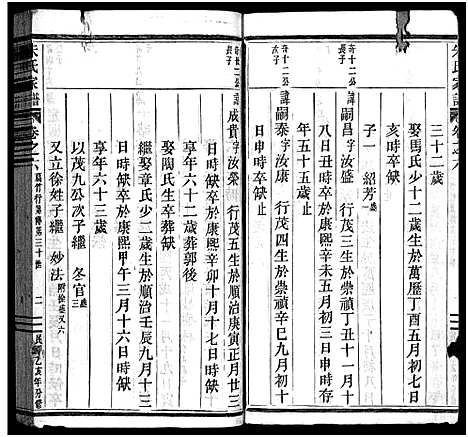 三十二歲
娶馬氏少十二歲生於萬歷丁酉五月初七日
亥時卒缺
子一 紹芳
奇十二公長子
諱嗣昌字盛 行茂三生於崇禎丁丑十一月十
八日丑時卒於康熙辛未五月初三日申時存
年五十五歲止
奇十二公次子
諱嗣泰字康 行茂四生於崇禎辛巳九月初十
日申時缺卒缺
朱氏家譜 卷之六
二
民國乙亥年分修
諱成貴字汝榮 行茂五生於順治庚寅正月廿三
日時缺卒於康熙辛卯十月十七日時缺
享年六十二歲葬郭後
娶陶氏生卒葬缺
繼娶章氏少二歲生於順治壬辰九月十三
日時缺卒於康熙甲午三月十六日時缺
享年六十三歲
以茂九公次子繼 冬官
又立徐姓子繼 妙法